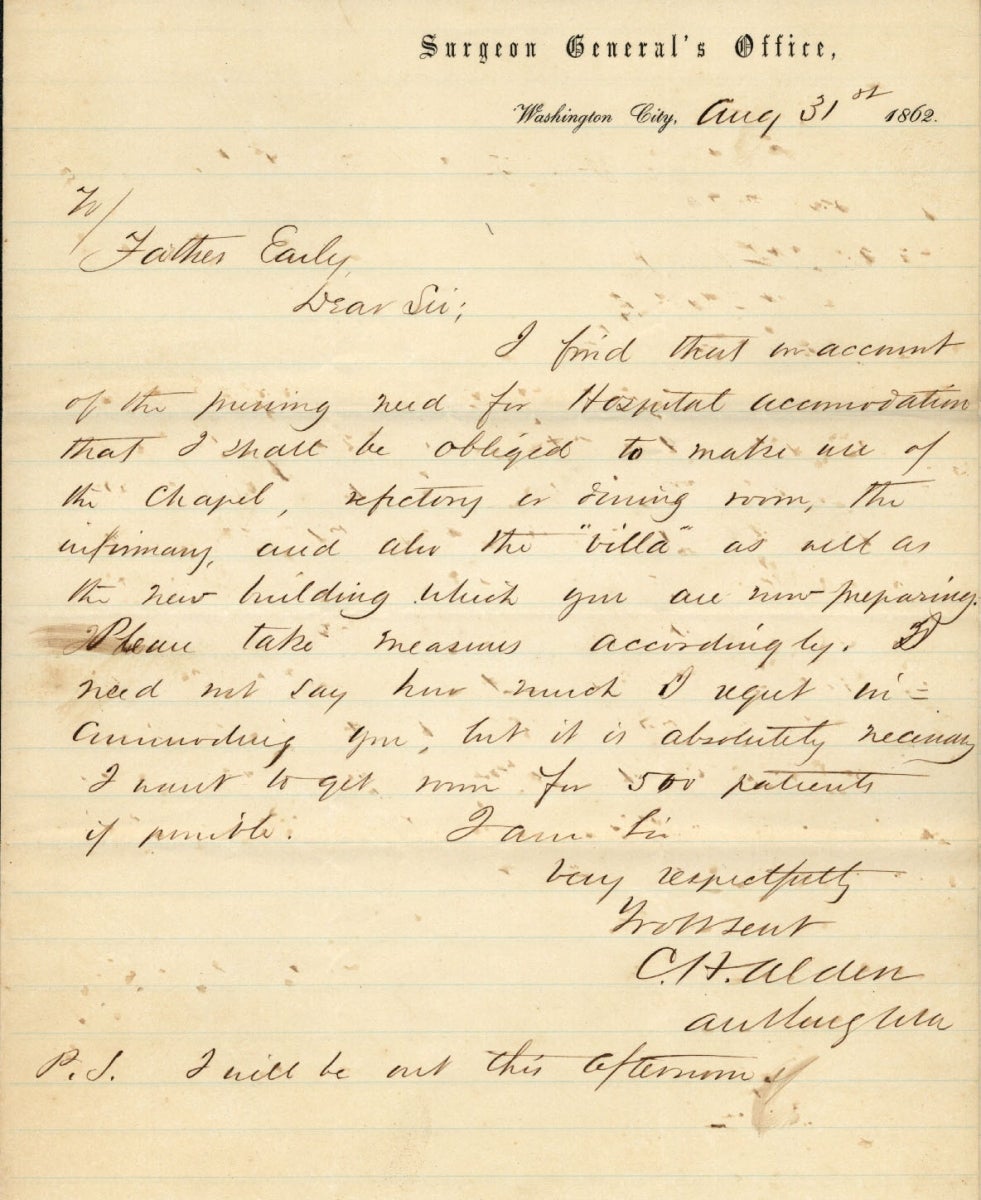 Surgeon General's Office,
Washington City, Aug 31st 1862.
To/
Father Early,
Dear Sir;
I find that on account
of the pressing need for Hospital accomodation
that I shall be obliged to make use of
the Chapel, refectory or dining room, the
infirmary, and also the "villa" as well as
the new building which you are now preparing.
Please take measures accordingly. I
need not say how much I regret in=
commoding you, but it is absolutely necessary
I want to get room for 500 patients
if possible. I am Sir
Very respectfully
Yr obt servt
C. H. Alden
Ast Surg USA
P.S. I will be out this afternoon